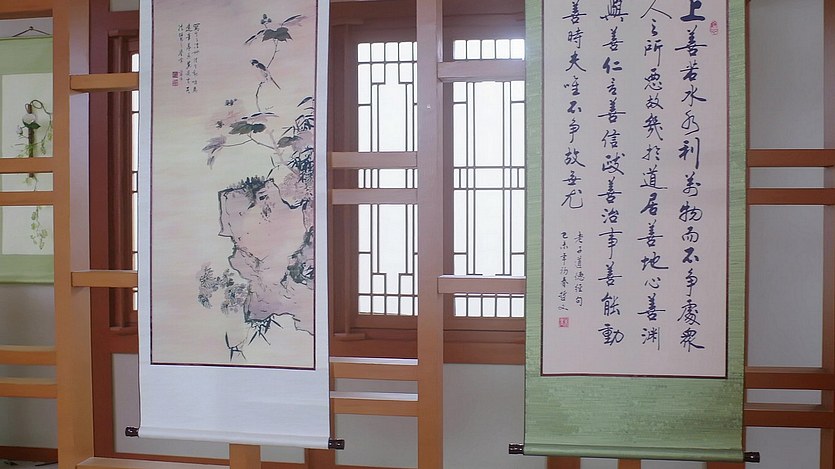 上善若水水利萬物而不争處衆
人之所惡故幾於道居善地心善渊
與善仁言善信政善治事善能動
善時夫唯不争故無尤
老子道德經句